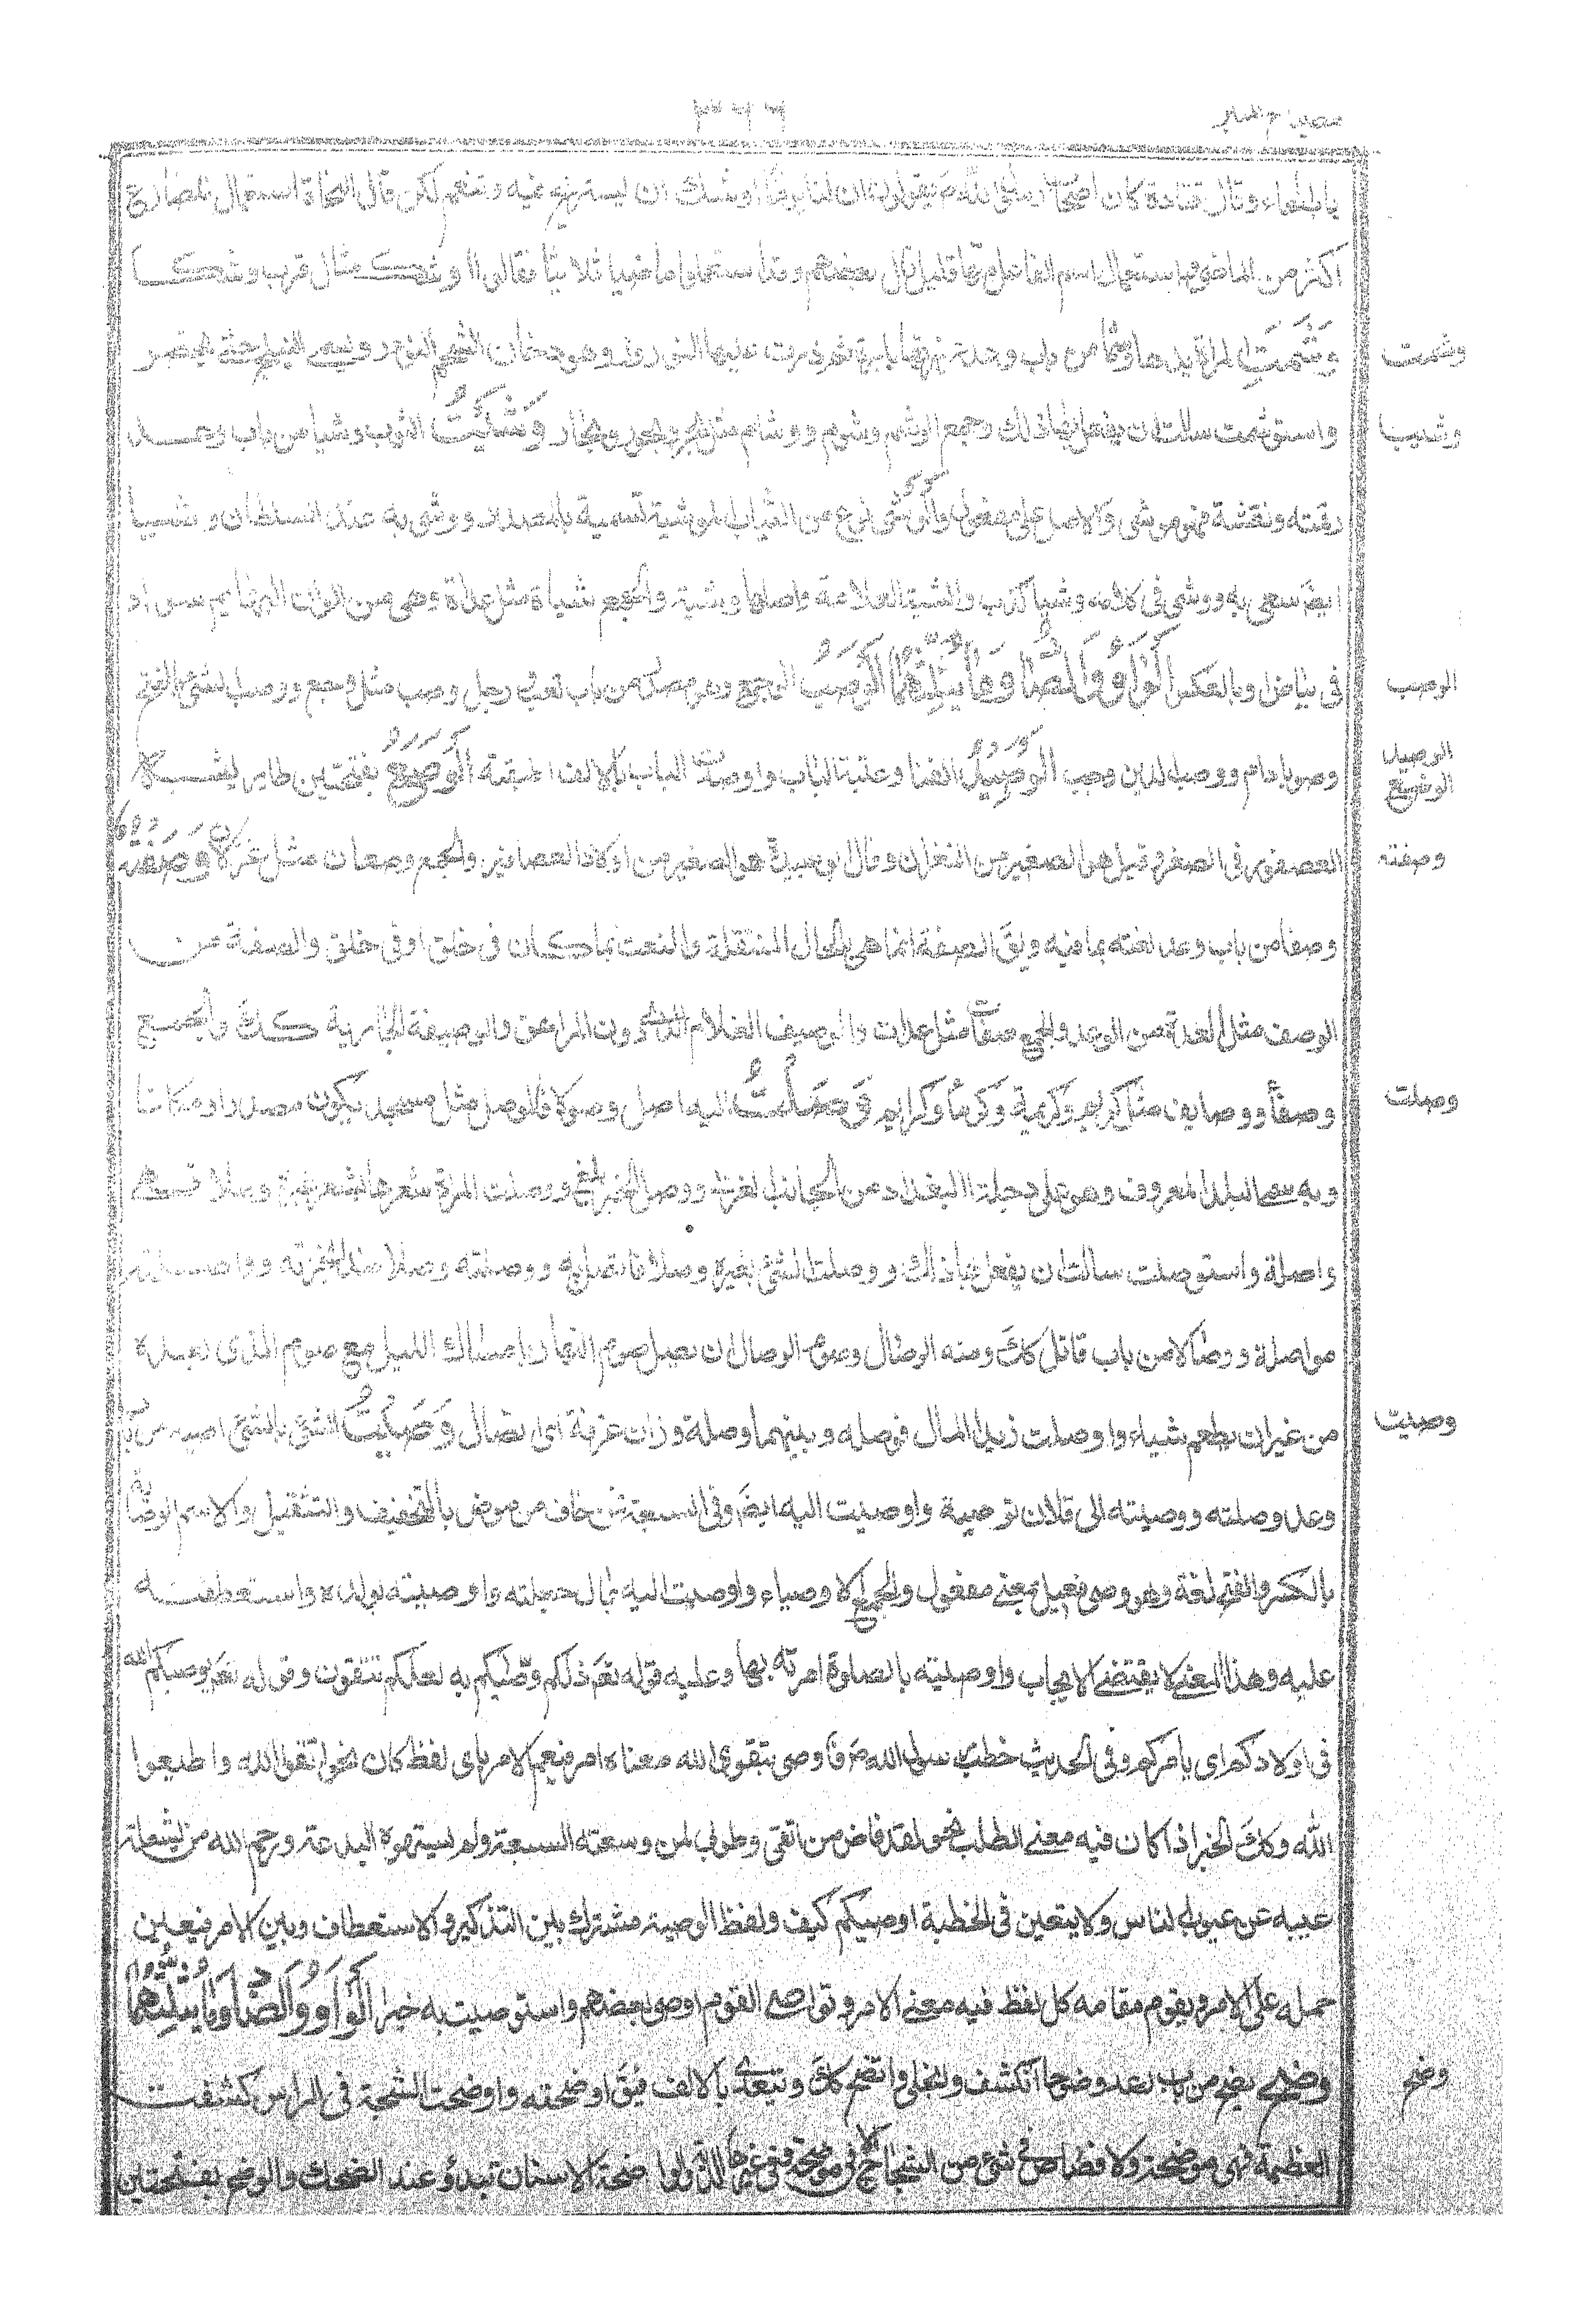 ٣٦٦
مصباح منير
بالعلماء وقال قتادة كان اصحاب رسول الله ص يقولون ان لنا يوما اوشك ان نستريح فيه وننعم لكن قال النحاة استعمال المضارع
اكثر من الماضي واستعمال اسم الفاعل منها قليل قال بعضهم وقد استعملوا ماضيا ثلاثيا فقالوا وشك مثال قرب وشكا
وشمت
وَشَمَتِ المراة يدها وشما من باب وعد غرزتها بابرة ثم ذرت عليها النؤر وهو دخان الشحم حتى يخضر
وشيت
واستوشمت سالت ان يفعل بها ذلك وجمع الوشم وشوم ووشام مثل بحر وبحور وبحار وَشَيْتُ الثوب وشيا من باب وعد
رقمته ونقشته فهو موشى والاصل على مفعول والوشى نوع من الثياب الموشية تسمية بالمصدر ووشى به عند السلطان وشيا
ايضَ سعى به ووشى في كلامه وشيا كذب والشية العلامة واصلها وشية والجمع شيات مثل عدات وهى من الوان البهايم سواد
الوصب
في بياض او بالعكس الْوَاوُ وَالصَّادُ وَمَا يُثَلِّثُهُمَا الْوَصَبُ الوجع وهو مصدر من باب تعب ورجل وصب مثل وجع ووصب الشئ بالفتح
الوصيد
الوصيع
وصوبا دام ووصب الدين وجب الْوَصِيْدُ الفنا وعتبة الباب واوصدت الباب بالالف اطبقته الْوَصَعُ بفتحتين طاير يشبه
وصفته
العصفور في الصغر وقيل هو الصغير من النغران وقال ابو عبيدة هو الصغير من اولاد العصافير والجمع وصعان مثل غزلان وَصَفْتُهُ
وصفا من باب وعد نعته بما فيه ويقَ الصفة انما هى بالحال المنتقلة والنعت بما كان في خلق او في خلق والصفة من
الوصف مثل العدة من الوعد والجمع صفات مثل عدات والوصيف الغلام دون المراهق والوصيفة الجارية كك والجمع
وصلت
وصفاء ووصايف مثل كريم وكريمة وكرماء وكرايم وَصَلْتُ اليه اصل وصولا والموصل مثل مسجد يكون مصدرا ومكانا
وبه سمى البلد المعروف وهو على دجلة من الجانب الغربى ووصل الخبر بلغ ووصلت المراة شعرها بشعر غيره وصلا فهى
واصلة واستوصلت سالت ان يفعل بها ذلك ووصلت الشئ بغيره وصلا فاتصل به ووصلته وصلا ضد هجرته وواصلته
مواصلة ووصالا من باب قاتل كك ومنه الوصال وصوم الوصال ان يصل صوم النهار بامساك الليل مع صوم الذى بعده
وصيت
من غير ان يطعم شياء واوصلت زيدا المال فوصله وبينهما وصلة وزان غرفة اى اتصال وَصَيْتُ الشئ بالشئ اصيه من باب
وعد وصلته ووصيته الى فلان توصية واوصيت اليه ايضَ وفي السبعة فمن خاف من موص بالتخفيف والتثقيل والاسم الوصاية
بالكسر والفتح لغة وهو وصى فعيل بمعنى مفعول والجمع الاوصياء واوصيت اليه بمال جعلته واوصيته بولده واستعطفته
عليه وهذا المعنى لا يقتضى الايجاب واوصيته بالصلوة امرته بها وعليه قوله تعَ ذلكم وصيكم به لعلكم تتقون وقوله تعَ يوصيكم الله
في اولادكم اى يأمركم وفي الحديث خطب رسول الله ص فاوصى بتقوى الله معناه امر فيعم الامر باى لفظ كان نحو اتقوا الله واطيعوا
الله وكك الخبر اذا كان فيه معنى الطلب نحو لقد فاض من اتقى وطوبى لمن وسعته السنة ولم تستهوه البدعة ورحم الله من شغله
عيبه عن عيوب الناس ولا يتعين في الخطبة اوصيكم كيف ولفظ الوصية مشترك بين التذكير والاستعطاف وبين الامر فيتعين
حمله على الامر ويقوم مقامه كل لفظ فيه معنى الامر وتواصى القوم اوصى بعضهم واستوصيت به خيرا الْوَاوُ وَالضَّادُ وَمَا يُثَلِّثُهُمَا
وضح
وضح يضح من باب وعد وضوحا انكشف وانجلى واتضح كك ويتعدى بالالف فيقَ اوضحته واوضحت الشجة في الراس كشفت
العظم فهى موضحة ولا قصاص في شئ من الشجاج الا في موضحة وفي غيرها الدية والواضحة الاسنان تبدو عند الضحك والوضح بفتحتين